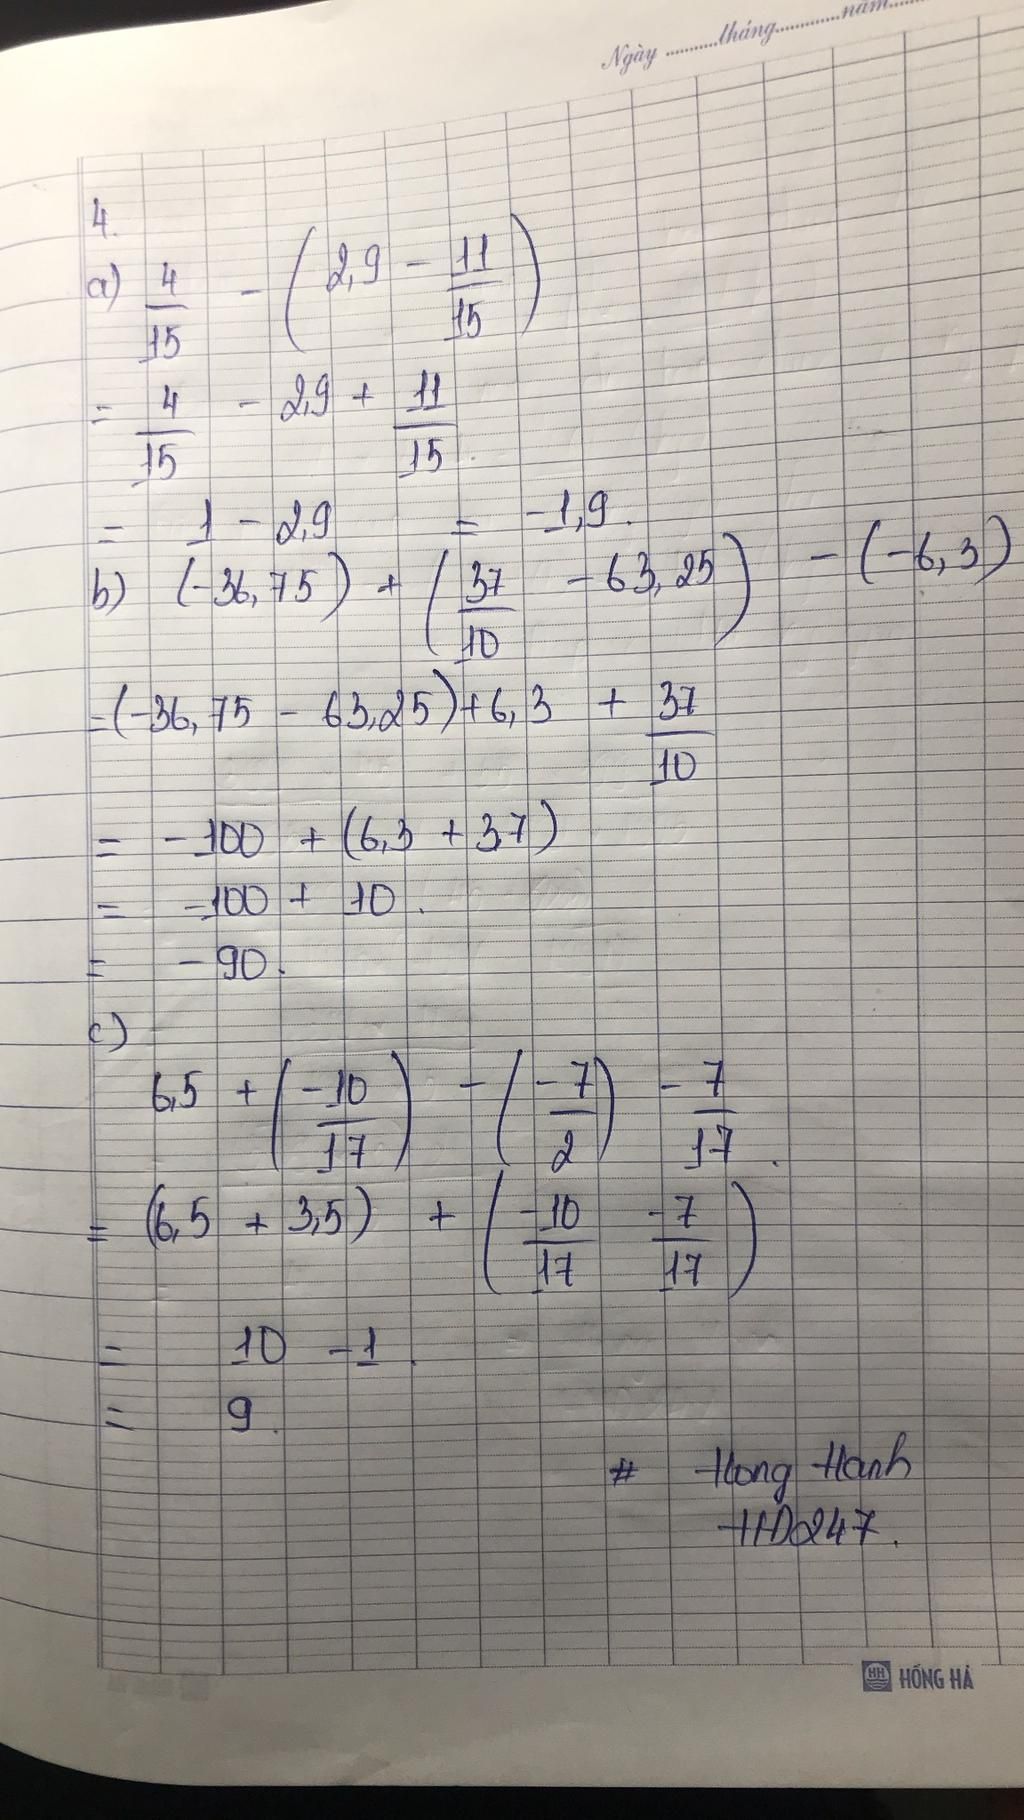 Ngày ..........tháng.............năm......
4.
a) 4/15 - (2,9 - 11/15)
= 4/15 - 2,9 + 11/15
= 1 - 2,9 = -1,9.
b) (-36,75) + (37/10 - 63,25) - (-6,3)
= (-36,75 - 63,25) + 6,3 + 37/10
= -100 + (6,3 + 3,7)
= -100 + 10.
= -90.
c)
6,5 + (-10/17) - (-7/2) - 7/17.
= (6,5 + 3,5) + (-10/17 - 7/17)
= 10 - 1.
= 9.
# Hong Hanh
HD247.
HH HỒNG HÀ